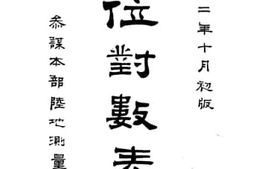 二年十月初版
位對數表
參謀本部陸地測量